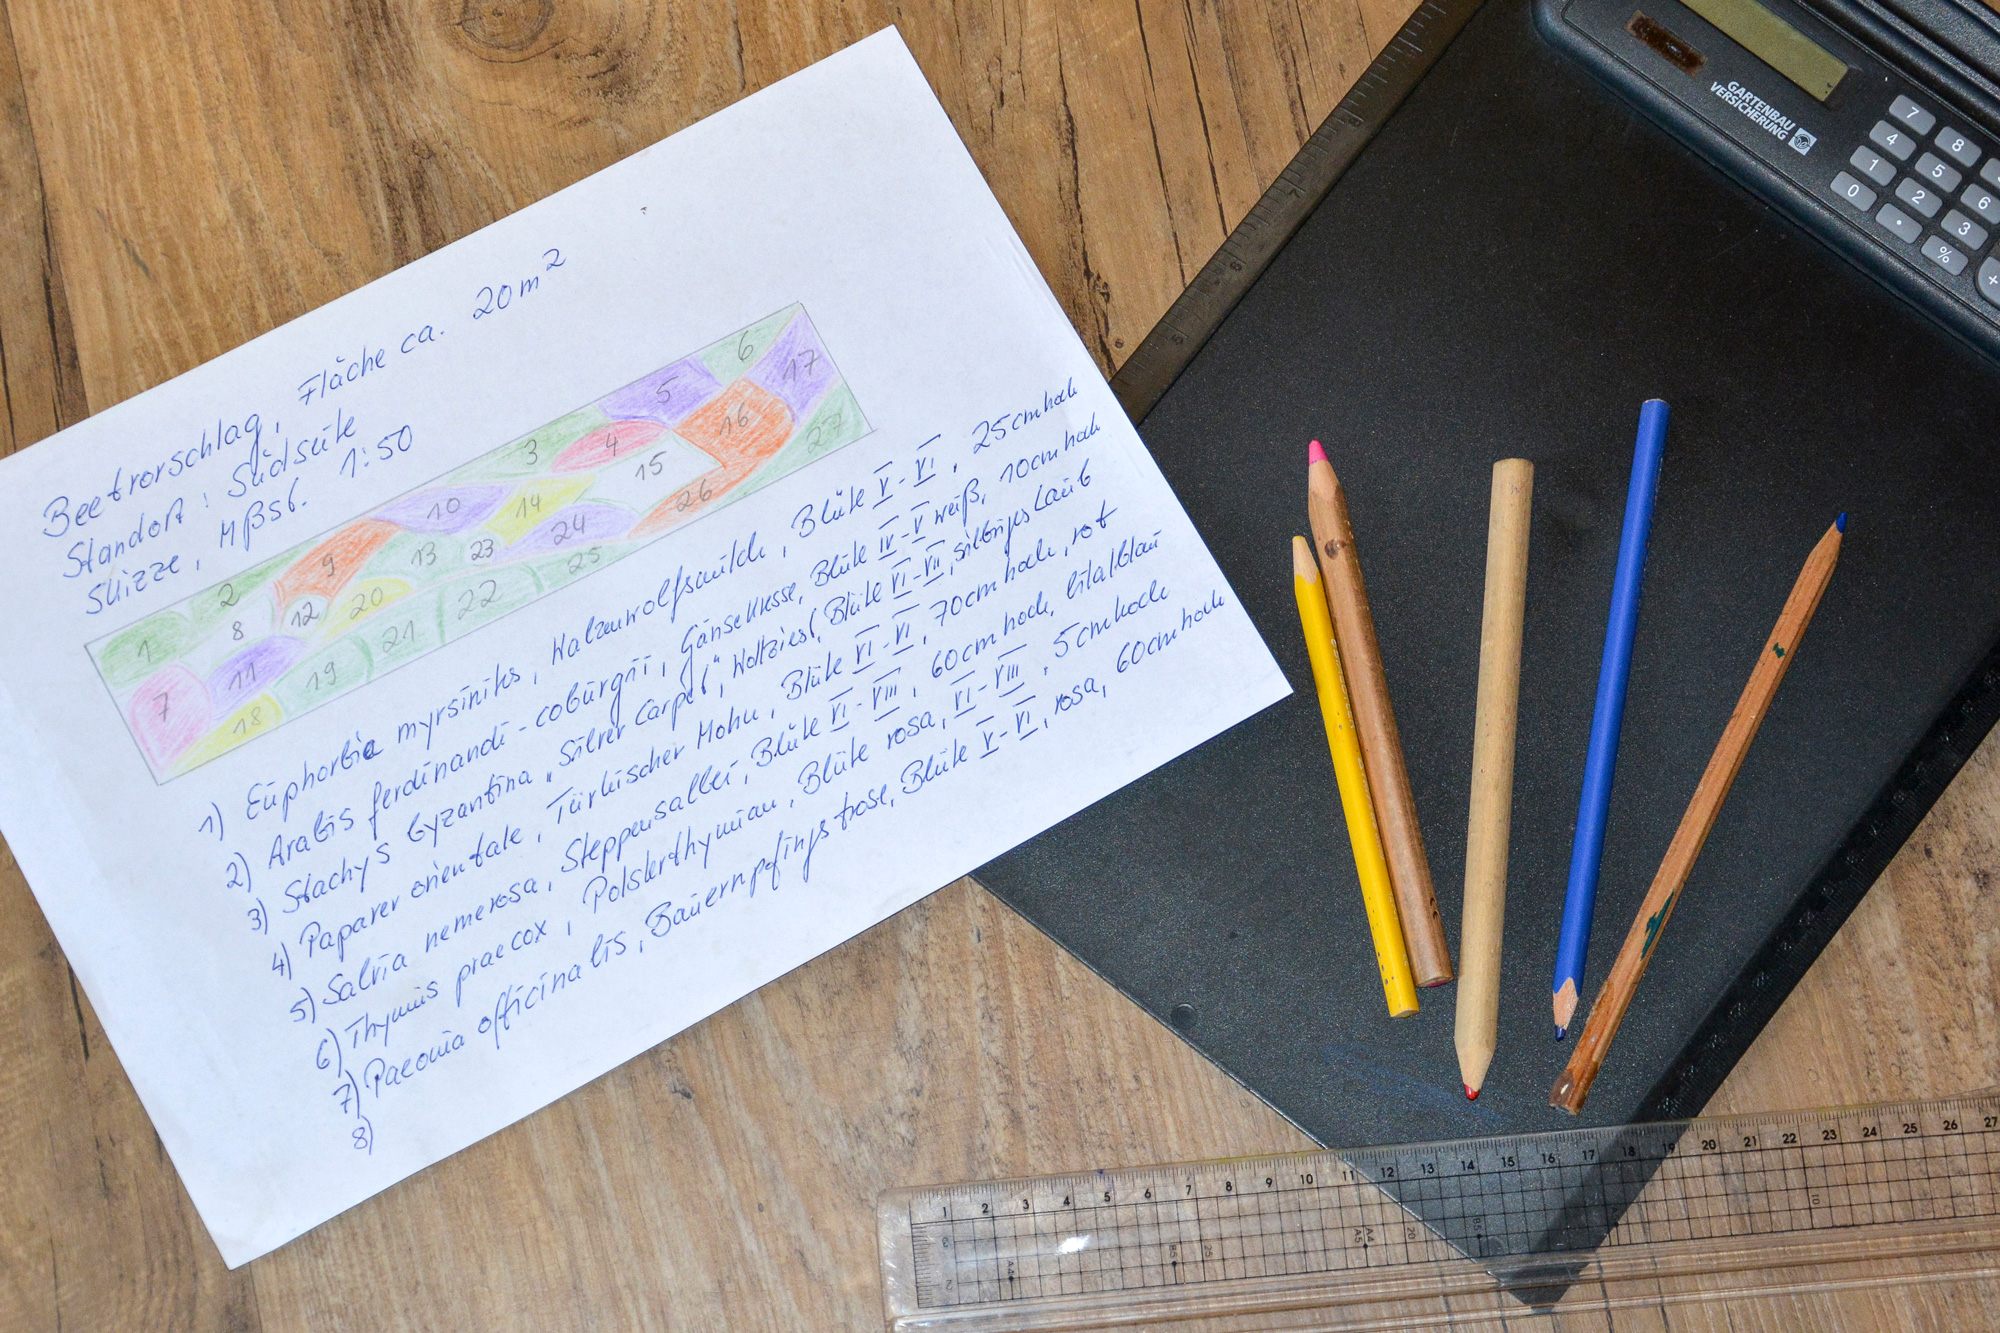 Beetvorschlag, Fläche ca. 20m²
Standort: Südseite
Skizze, Mßst. 1:50
1 2 3 4 5 6
7 8 9 10 11 12 13 14 15 16 17
18 19 20 21 22 23 24 25 26 27
1) Euphorbia myrsinites, Walzenwolfsmilch, Blüte V-VI, 25cm hoch
2) Arabis ferdinandi-coburgii, Gänsekresse, Blüte IV-V weiß, 10cm hoch
3) Stachys byzantina "Silver Carpet", Wollziest, Blüte VI-VII, silbriges Laub
4) Papaver orientale, Türkischer Mohn, Blüte VI-VI, 70cm hoch, rot
5) Salvia nemerosa, Steppensalbei, Blüte VI-VIII, 60cm hoch, lilablau
6) Thymus praecox, Polsterthymian, Blüte rosa, VI-VIII, 5cm hoch
7) Paeonia officinalis, Bauernpfingstrose, Blüte V-VI, rosa, 60cm hoch
8)
GARTENBAU
VERSICHERUNG
7 8
4 5 6
1 2 3
0 . % +
1 2 3 4 5 6 7 8 9 10 11 12 13 14 15 16 17 18 19 20 21 22 23 24 25 26 27